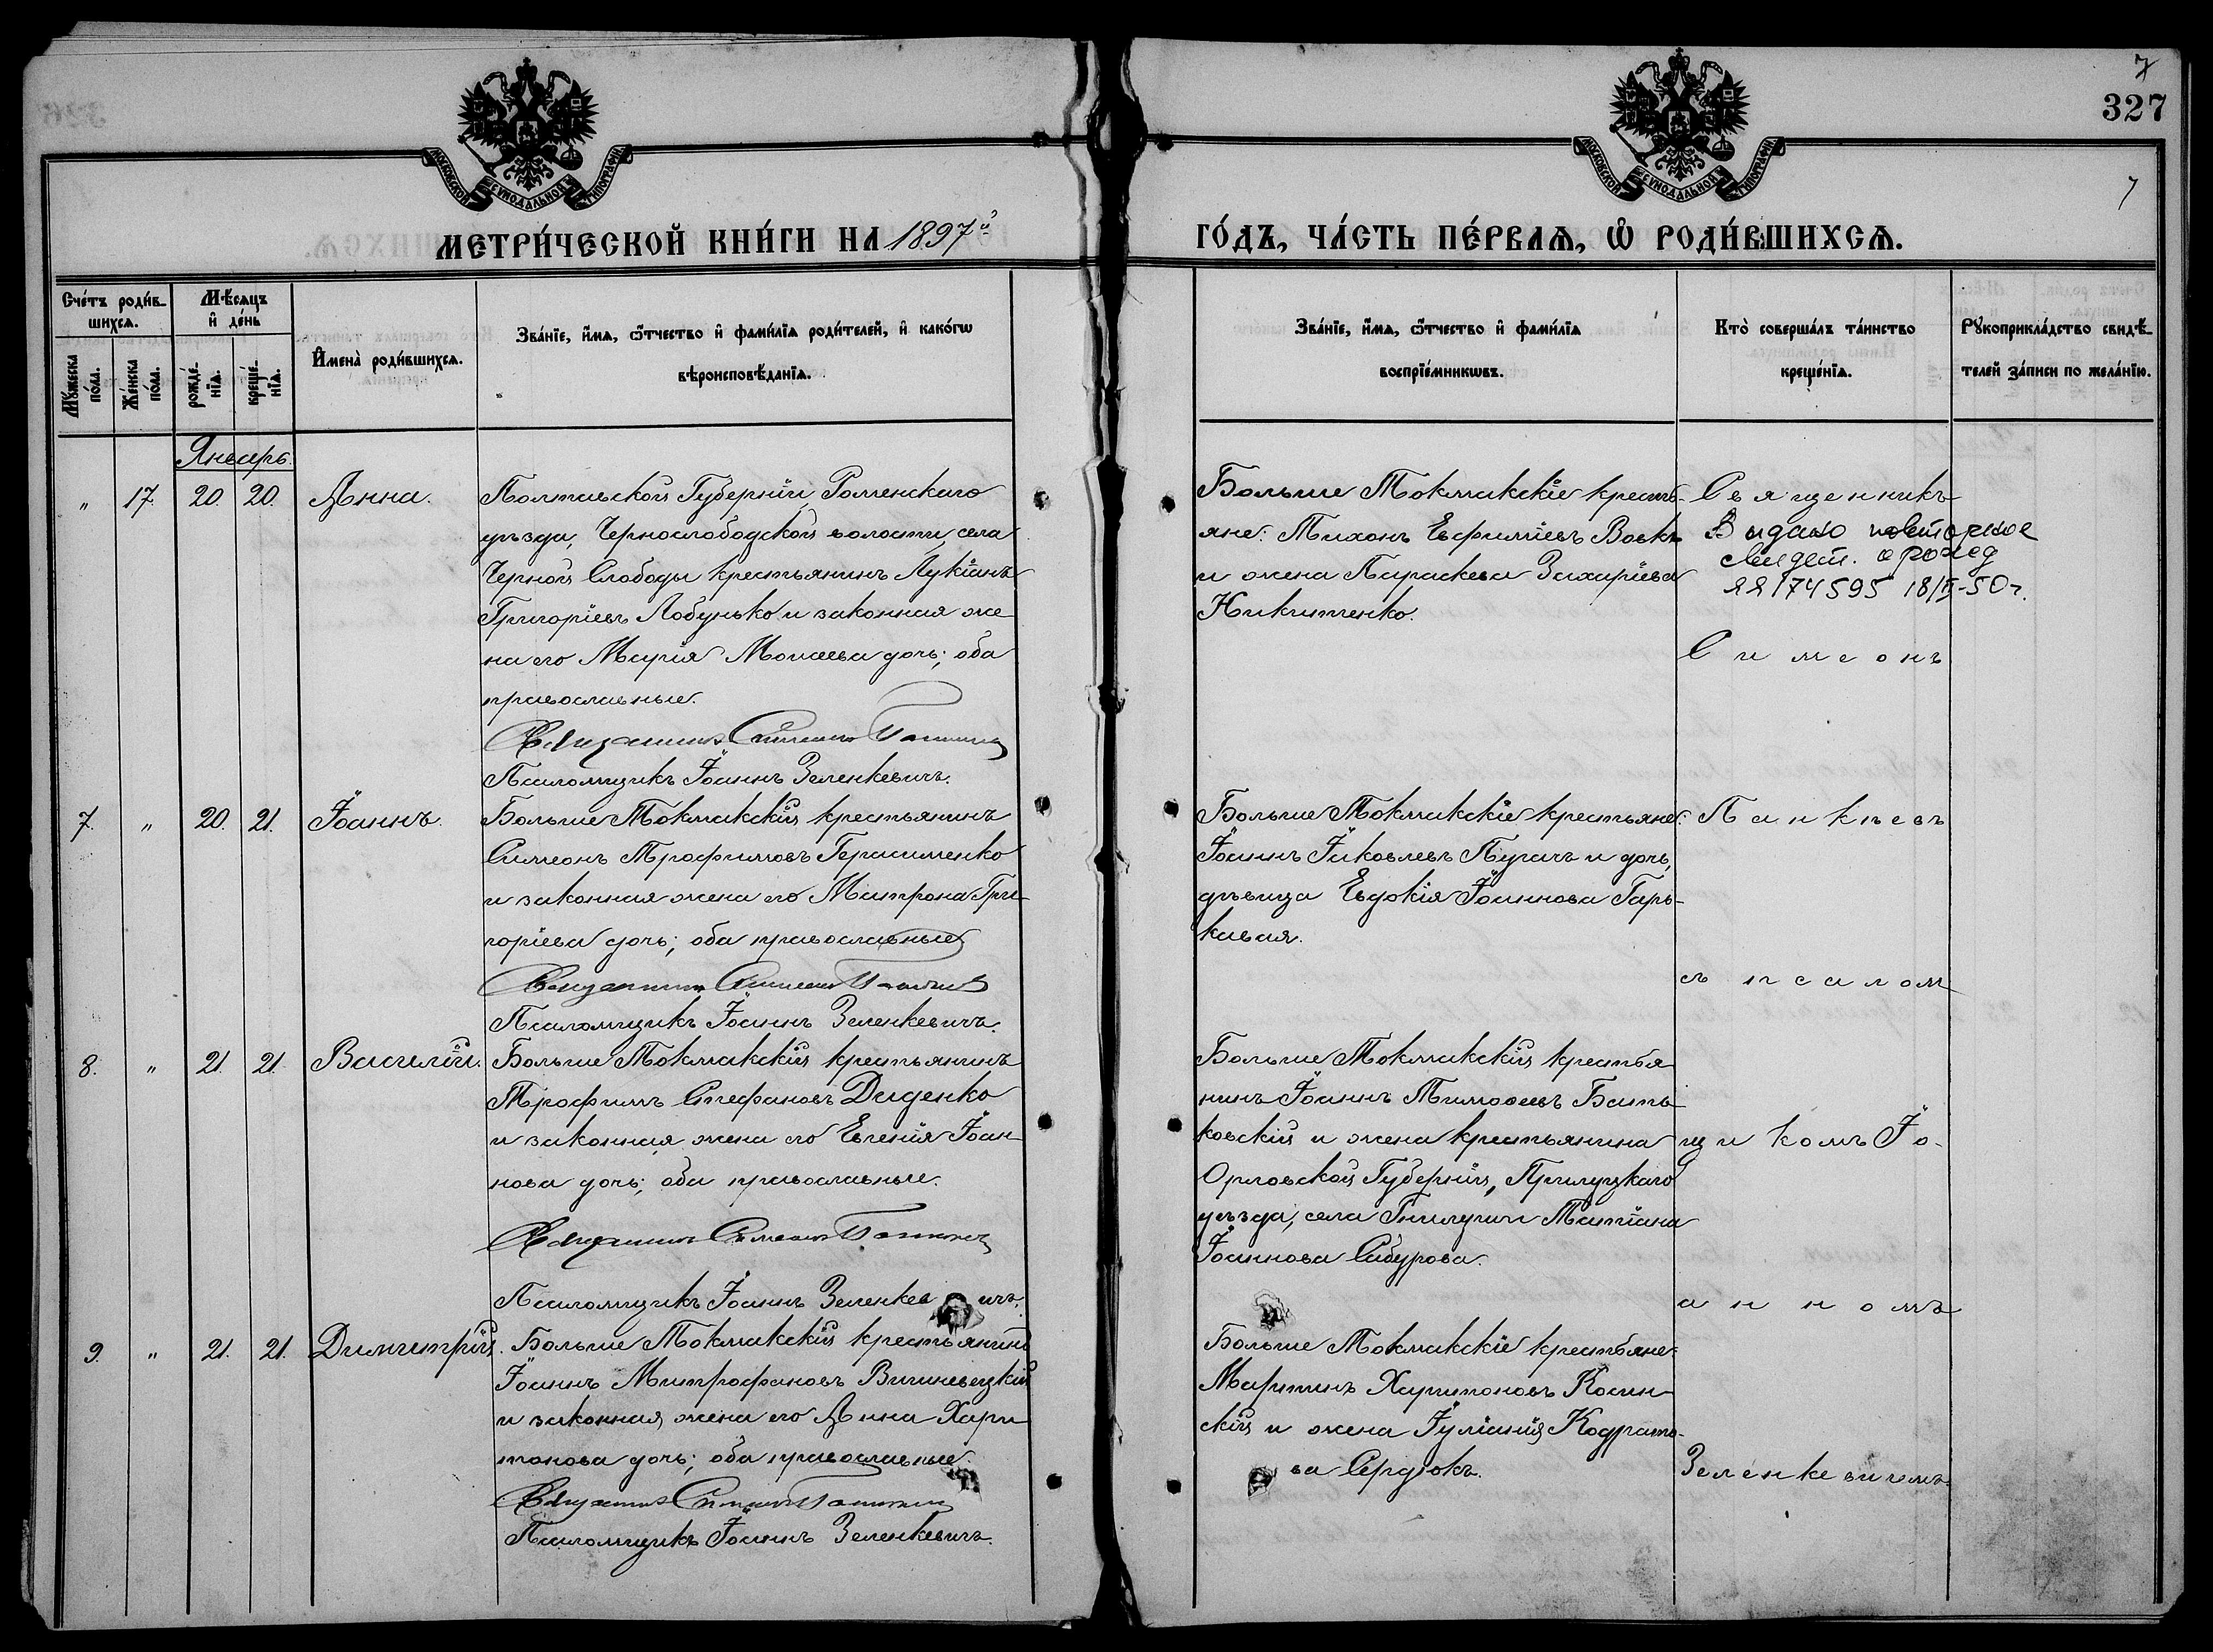 7
327
МОСКОВСКОЙ СѴНОДАЛЬНОЙ ТИПОГРАФІИ
МОСКОВСКОЙ СѴНОДАЛЬНОЙ ТИПОГРАФІИ
7
МЕТРИ́ЧЕСКОЙ КНИ́ГИ НА 1897й
ГО́ДЪ, ЧА́СТЬ ПЕ́РВАѦ, Ѡ РОДИ́ВШИХСѦ.
Сче́тъ роди́в-
шихсѧ.
Мꙋ́жеска по́ла.
Же́нска по́ла.
Мѣ́сѧцъ
и҆ де́нь
рожде́-
нїѧ.
креще́-
нїѧ.
И҆мена̀ роди́вшихсѧ.
Зва́нїе, и҆́мѧ, ѻ҆́тчество и҆ фами́лїѧ роди́телей, и҆ како́гѡ
вѣроисповѣ́данїѧ.
Зва́нїе, и҆́мѧ, ѻ҆́тчество и҆ фами́лїѧ
воспрїе́мникѡвъ.
Кто̀ соверша́лъ та́инство
креще́нїѧ.
Рꙋкоприкла́дство свидѣ́-
телей за́писи по жела́нїю.
Январь.
" 17. 20. 20. Анна.
Полтавской Губерніи, Роменскаго
уѣзда, Чернослободской волости, села
Черной Слободы крестьянинъ Лукіанъ
Григоріевъ Лобунько и законная же
на его Марія Моисеева дочь; оба
православные.
Священникъ Симеонъ
Псаломщикъ Іоаннъ Зеленкевичъ.
Больше Токмакскіе кресть-
яне: Тихонъ Евфиміевъ Вовкъ
и жена Параскева Захаріева
Никитенко.
Священникъ
Выдано повторное
свидет. о рожд
ЯЯ 174595 18/II-50г.
Симеонъ
7. " 20. 21. Іоаннъ.
Больше Токмакскій крестьянинъ
Симеонъ Трофимовъ Герасименко
и законная жена его Матрона Гри-
горіева дочь; оба православные
Священникъ Симеонъ
Псаломщикъ Іоаннъ Зеленкевичъ.
Больше Токмакскіе крестьяне:
Іоаннъ Іаковлевъ Пугачъ и дочь,
дѣвица Евдокія Іоаннова Гарь-
кавая.
Панкѣевъ
съ псалом
8. " 21. 21. Василій.
Больше Токмакскій крестьянинъ
Трофимъ Стефановъ Диденко
и законная жена его Евгенія Іоан-
нова дочь; оба православные.
Священникъ Симеонъ
Псаломщикъ Іоаннъ Зеленкевичъ.
Больше Токмакскій крестья
нинъ Іоаннъ Тимоѳеевъ Бать-
ковскій и жена крестьянина
Орловской Губерніи,
уѣзда, села Татіана
Іоаннова Сабурова.
щикомъ Іо-
анномъ
9. " 21. 21. Димитрій.
Больше Токмакскій крестьянинъ
Іоаннъ Митрофановъ Вишневецкій
и законная жена его Анна Хари
тонова дочь; оба православные.
Священникъ Симеонъ
Псаломщикъ Іоаннъ Зеленкевичъ.
Больше Токмакскіе крестьяне:
Мартинъ Харитоновъ Косин-
скій и жена Іуліанія Кодрато-
ва Сердюкъ.
Зеленкевичемъ.